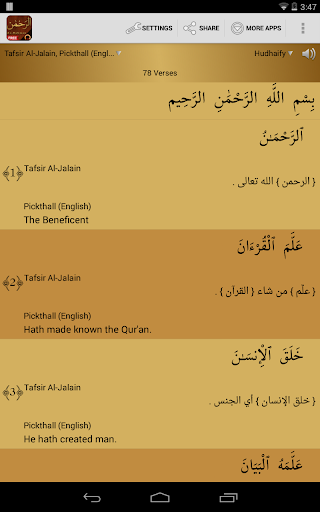 3:47
الرحمن
FREE
SETTINGS
SHARE
MORE APPS
Tafsir Al-Jalain, Pickthall (Engl...
Hudhaify
78 Verses
بِسْمِ اللَّهِ الرَّحْمَٰنِ الرَّحِيمِ
ٱلرَّحْمَـٰنُ
﴿1﴾
Tafsir Al-Jalain
{ الرحمن } الله تعالى .
Pickthall (English)
The Beneficent
عَلَّمَ ٱلْقُرْءَانَ
﴿2﴾
Tafsir Al-Jalain
{ علّم } من شاء { القرآن } .
Pickthall (English)
Hath made known the Qur'an.
خَلَقَ ٱلْإِنسَـٰنَ
﴿3﴾
Tafsir Al-Jalain
{ خلق الإنسان } أي الجنس .
Pickthall (English)
He hath created man.
عَلَّمَهُ ٱلْبَيَانَ